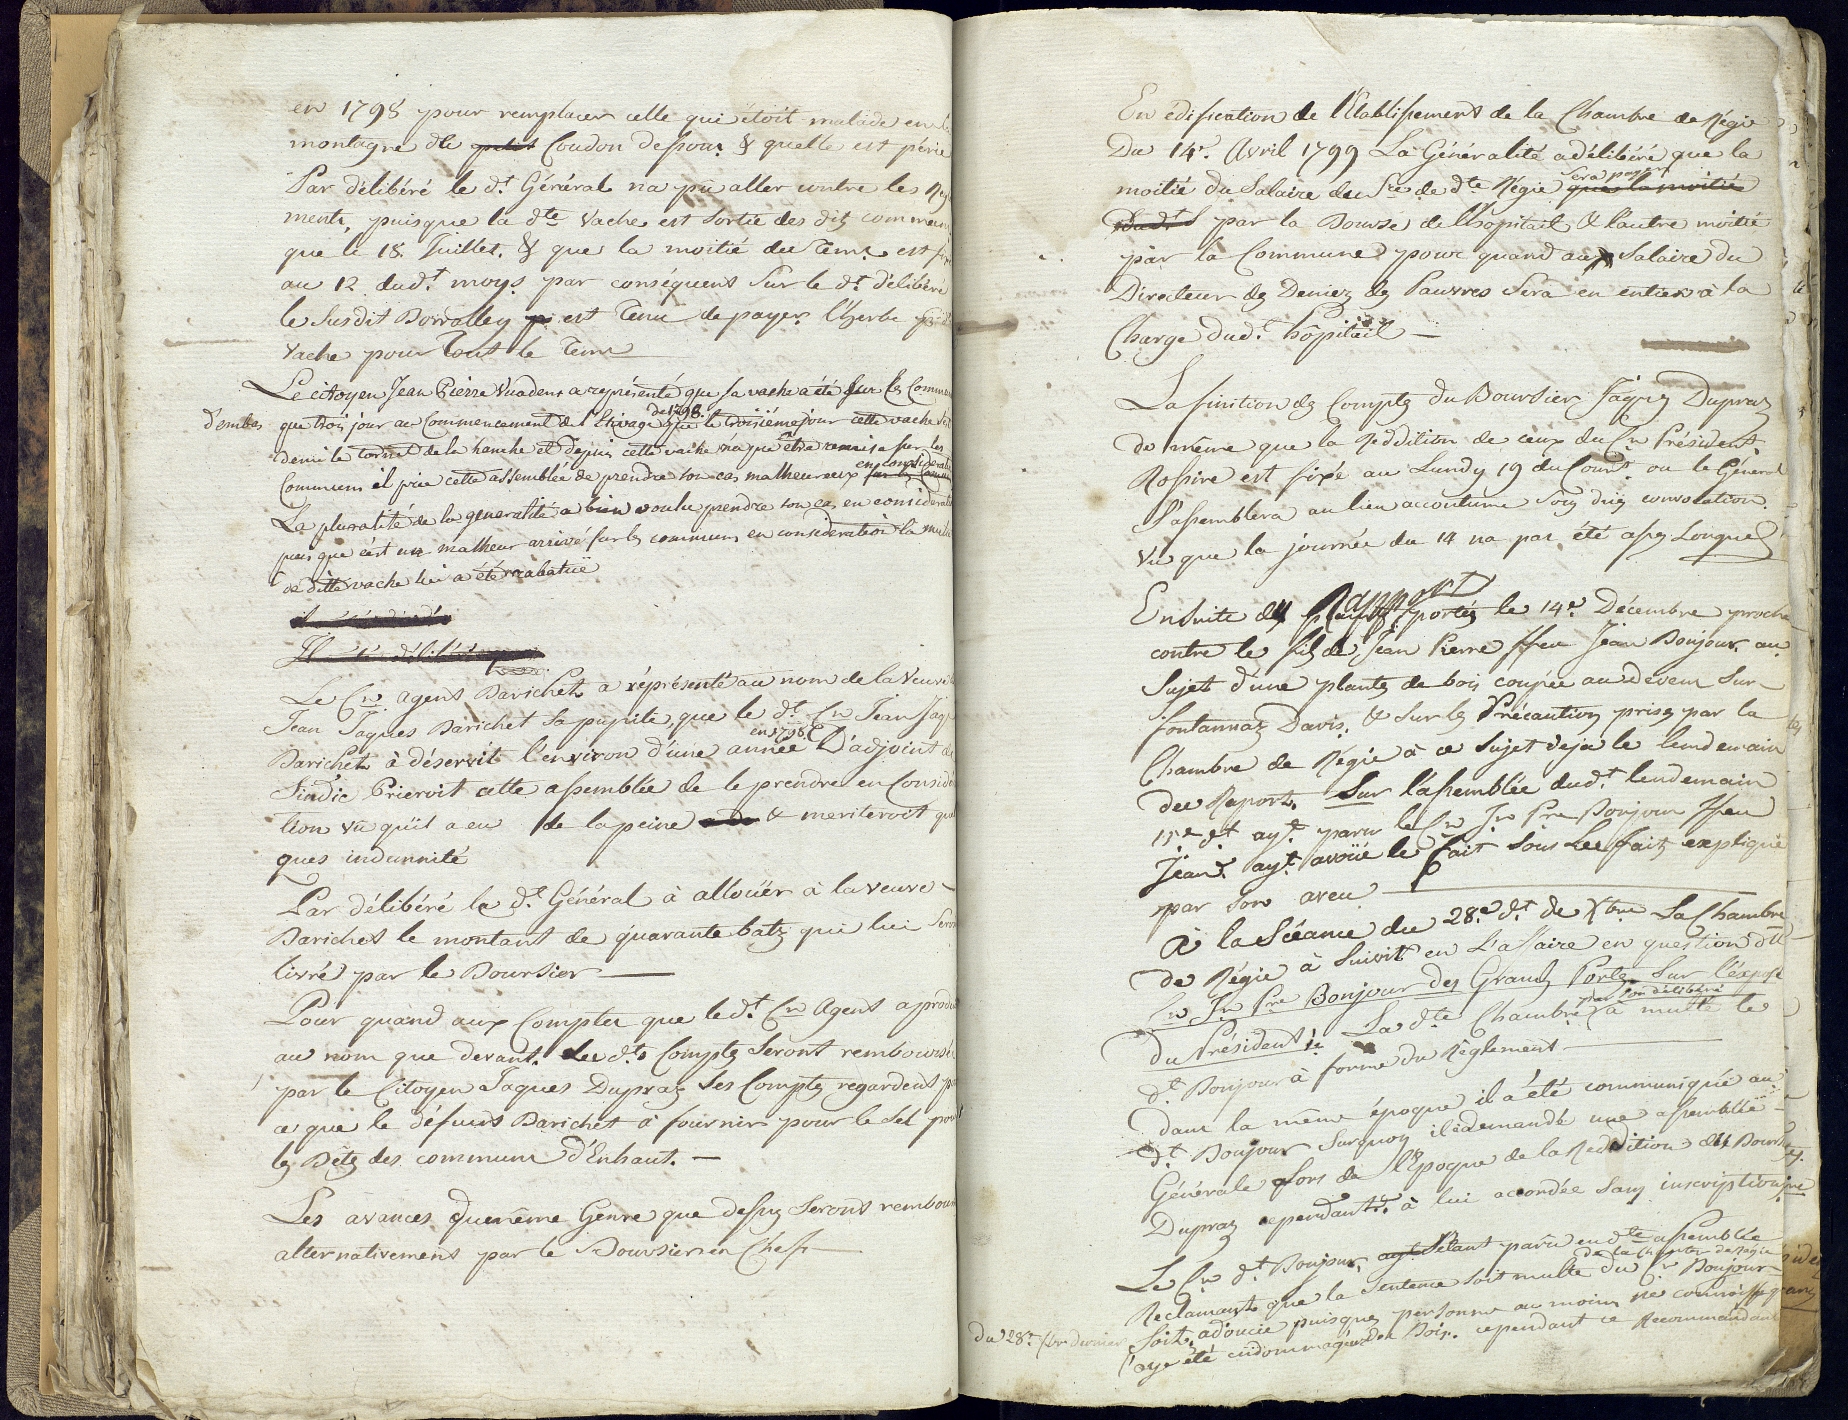 en 1798 pour remplacer celle qui étoit malade en la
montagne dte petit Coudon dessous & quelle est périe
Par délibéré le dt. Général na pu aller contre les Regle
ments, puisque la dte vache est sortie des dits communs
que le 18. Juillet. & que la moitié du Tems est
au 12 dudt. moys par conséquent sur le dt. délibéré
le susdit est Tenu de payer l'herbe
vache pour Tout le Tems
Le citoyen Jean Pierre Vuadens a représenté que sa vache a été sur les Commun
d'embas que trois jour au Commencement de l'Etivage de 1798. que le troisième jour cette vache s'est
demi le tornet de la hanche et depuis cette vache n'a pu être remise sur les
Communs il prie cette assemblée de prendre son cas malheureux en considération
La pluralité de la generalité a bien voulu prendre son cas en considerati
puis que c'est un malheur arrivé sur les communs en consideration la
de ditte vache lui a été rabatue
Il
Il délibéré
Le Cn agent Barichet a réprésenté au nom de la Veuve
Jean Jaques Barichet sa pupile, que le dt. Cn Jean Jaq
Barichet à déservit l'environ d'une année en 1798 L'adjoint de
Sindic Prieroit cette assemblée de le prendre en Considé
tion vû qu'il a eu de la peine & meriteroit quel
ques indamnité
Par délibéré le dt. Général à alloüer à la veuve
Barichet le montant de quarante batz qui lui seront
livré par le Boursier
Pour quand aux Comptes que le dt. Cn Agent a produi
au nom que devant. Les dts Comptes seront remboursé
par le Citoyen Jaques Dupraz Ses Comptes regardent
ce que le défunt Barichet à fournir pour le Sel pour
les Bêtes des communs d'Enhaut.
Les avances du même Genre que dessus seront rembour
alternativement par le Boursier en Chef
En édification de l'Etablissement de la Chambre de Régie
Du 14e. Avril 1799 La Généralité a délibéré que la
moitié du Salaire du Sre de dte Régie sera payé que la moitié
dudt S par la Bourse de l'hôpitail & l'autre moitié
par la Commune pour quand au Salaire du
Directeur des Deniez des Pauvres Sera en entier à la
Charge dudt. hôpitail
La finition des Comptes du Boursier Jaques Dupraz
de même que la Reddition de ceux du Cn Président
Rossire est fixée au Lundy 19 du Court. ou le Général
S'assemblera au lieu accoutumé sans autre convocation.
Vu que la journée du 14 na pas été assez Longue
Ensuite des Rapport portés le 14e. Décembre proche
contre le fils de Jean Pierre ffeu Jean Bonjour au
Sujet d'une plantes de bois coupée au devens sur
fontannaz Davis. & sur les Précaution prises par la
Chambre de Régie à ce Sujet deja le lendemain
du Raport. Sur l'assemblée dudt. lendemain
15e dt ayt. paru le Cn Jn Pre Bonjour ffeu
Jean. ayt. avoüé le fait sous Les faits expliqué
par son aveu
À la Scéance du 28e dt. de Xbre La Chambre
de Régie à Suivit en L'affaire en question dt
Cn Jn Pre Bonjour des Grands Portes sur l'exposé
du Président. La dte Chambre par son délibéré a multé le
dt. Bonjour à forme du Règlement
dans la même époque il a été communiqué au
dt. Bonjour Surquoy il a demandé une assemblée
Générale lors de l'Epoque de la Reddition du Boursier
Dupraz cependant à lui accordée sans inscription
Le Cn dt. Bonjour ayt S'étant paru en dte assemblée
Reclamant que la Sentence soit multe de la Chambre de Régie du Cn Bonjour
du 28e Xbre dernier Soit adoucie puisque personne au moins ne connoisse
l'aye été endommagé du Bois. cependant ce Recommandant